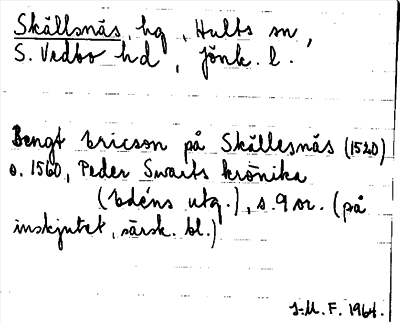 Skällsnäs, hg, Hults sn,
S. Vedbo hd, Jönk. l.
Bengt Ericson på Skällesnäs (1520)
o. 1560, Peder Swarts krönika
(Edéns utg.), s. 9 or. (på
inskjutet, särsk. bl.)
J.M.F. 1964.